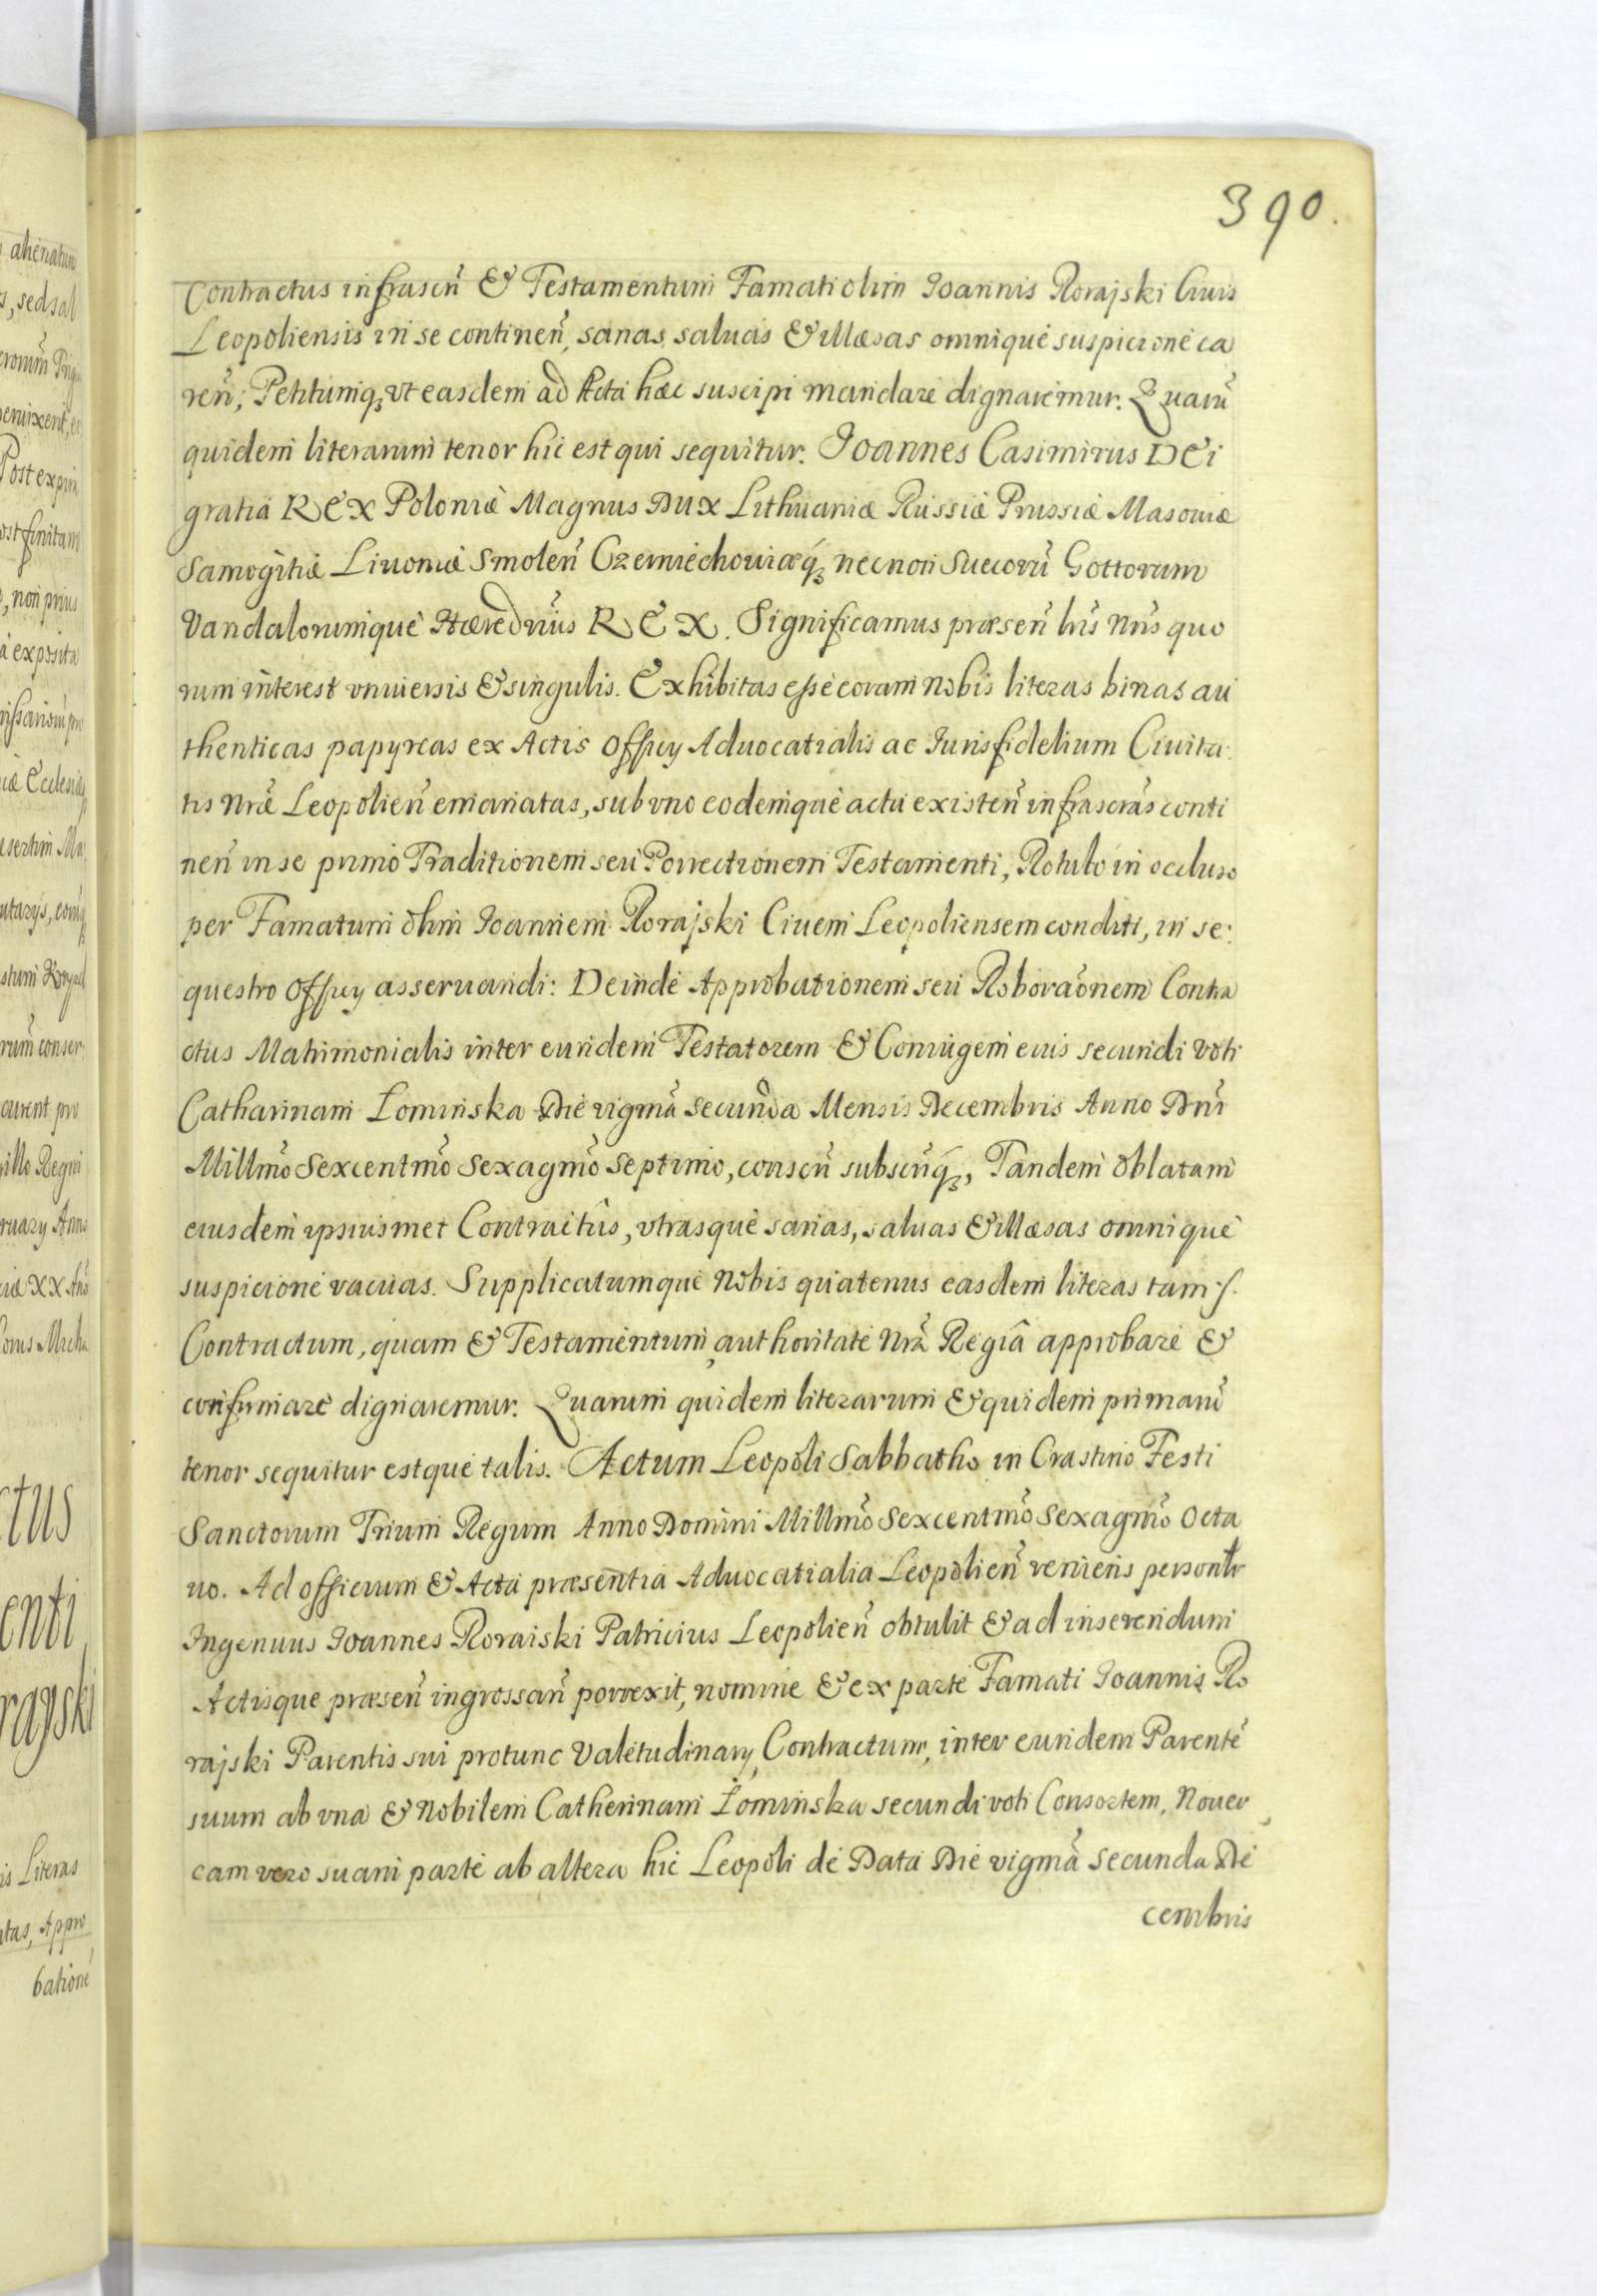 390.
Contractus infrascrı̃ & Testamentum Famati olim Joannis Rorajski Civis
Leopoliensis in se continen̄, sanas, saluas & illæsas omnique suspicione ca
ren̄; Petitumq3 vt easdem ad Acta hæc suscipi mandare dignaremur. Quarū
quidem literarum tenor hic est qui sequitur. Joannes Casimirus DEi
gratia REX Poloniæ Magnus Dux Lithuaniæ Russiæ Prussiæ Masouiæ
Samogitiæ Liuoniæ Smolen̄ Czerniechouiæq3 necnon Suecorū Gottorum
Vandalorumque Hæredrius REX. Significamus præsen̄ lr̄is Nr̄is quo
rum interest vniuersis & singulis. Exhibitas esse coram Nobis literas binas au
thenticas papyreas ex Actis Officij Aduocatialis ac Jurisfidelium Ciuita:
tis Nr̄æ Leopolien̄ emanatas, sub vno eodemque actu existen̄ infrascr̄as conti
nen̄ in se primo Traditionem seu Porrectionem Testamenti, Rotulo in occluso
per Famatum olim Joannem Rorajski Ciuem Leopoliensem conditi, in se:
questro Officij asseruandi: Deinde Approbationem seu Roborao̅nem Contra
ctus Matrimonialis inter eundem Testatorem & Coniugem eius secundi voti
Catharinam Łominska Die vigmā secunda Mensis Decembris Anno Dn̄i
Millmō Sexcentmō Sexagmō Septimo, conscrı̃ subscrı̃q3, Tandem oblatam
eiusdem ipsiusmet Contractûs, vtrasque sanas, saluas & illæsas omnique
suspicione vacuas. Supplicatumque Nobis quatenus easdem literas tam :/.
Contractum, quam & Testamentum, authoritate Nr̄a Regiâ approbare &
confirmare dignaremur. Quarum quidem literarum & quidem primarū
tenor sequitur estque talis. Actum Leopoli Sabbatho in Crastino Festi
Sanctorum Trium Regum Anno Domini Millmō Sexcentmō Sexagmō Octa
uo. Ad officium & Acta præsentia Aduocatialia Leopolien̄ veniens personlr
Ingenuus Joannes Roraiski Patricius Leopolien̄ obtulit & ad inserendum
Actisque præsen̄ ingrossan̄ porrexit, nomine & ex parte Famati Joannis Ro
rajski Parentis sui protunc Valetudinarij, Contractum, inter eundem Parentē
suum ab vna & Nobilem Catherinam Łominska secundi voti Consortem, Nouer
cam vero suam parte ab altera hic Leopoli de Data Die vigmā secunda De
cembris